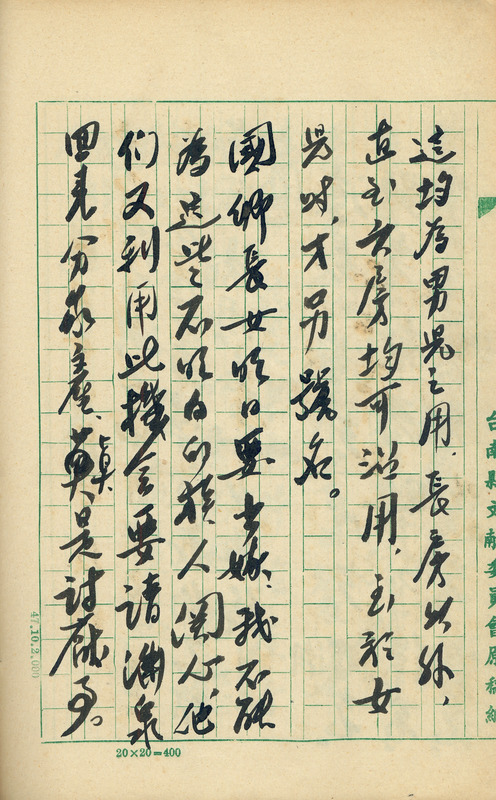 這均為男兒之用，長房以外，
直至六房均可沿用，至於女
兒时，才另號名。
國卿長女昨日要出嫁，我不能
為這些不明白的族人関心，他
们又利用此機会要請滿泉
回来分家產，真是討厭的事。
台南縣文献委員會原稿紙
47.10.2.000
20×20=400